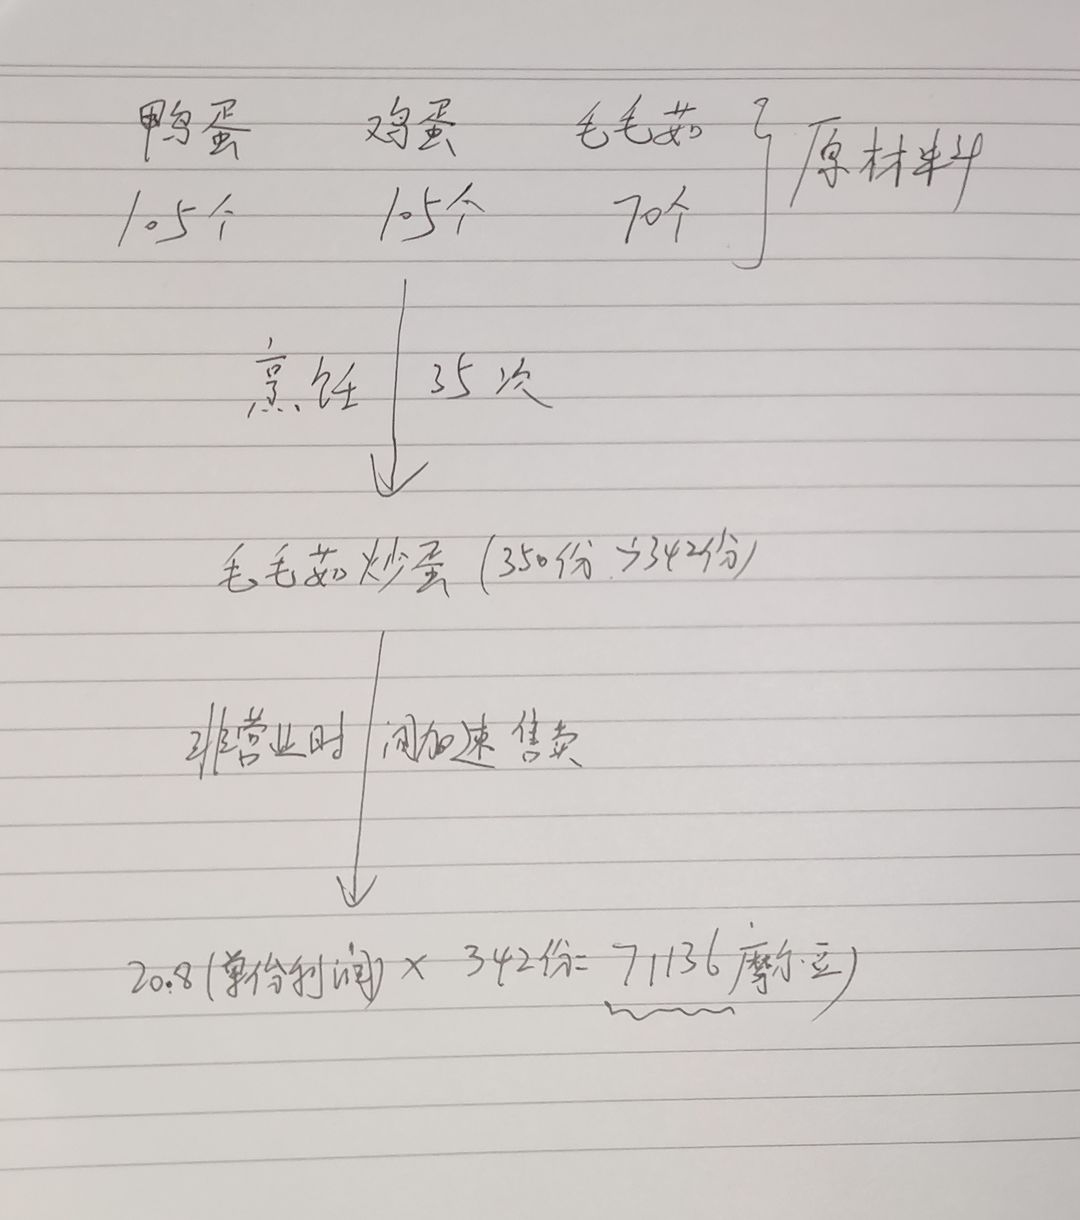 鸭蛋 鸡蛋 毛毛菇 } 原材料
105个 105个 70个
烹饪 35次
毛毛菇炒蛋 (350份→342份)
非营业时间加速售卖
20.8(单份利润) × 342份= 71136摩尔豆)